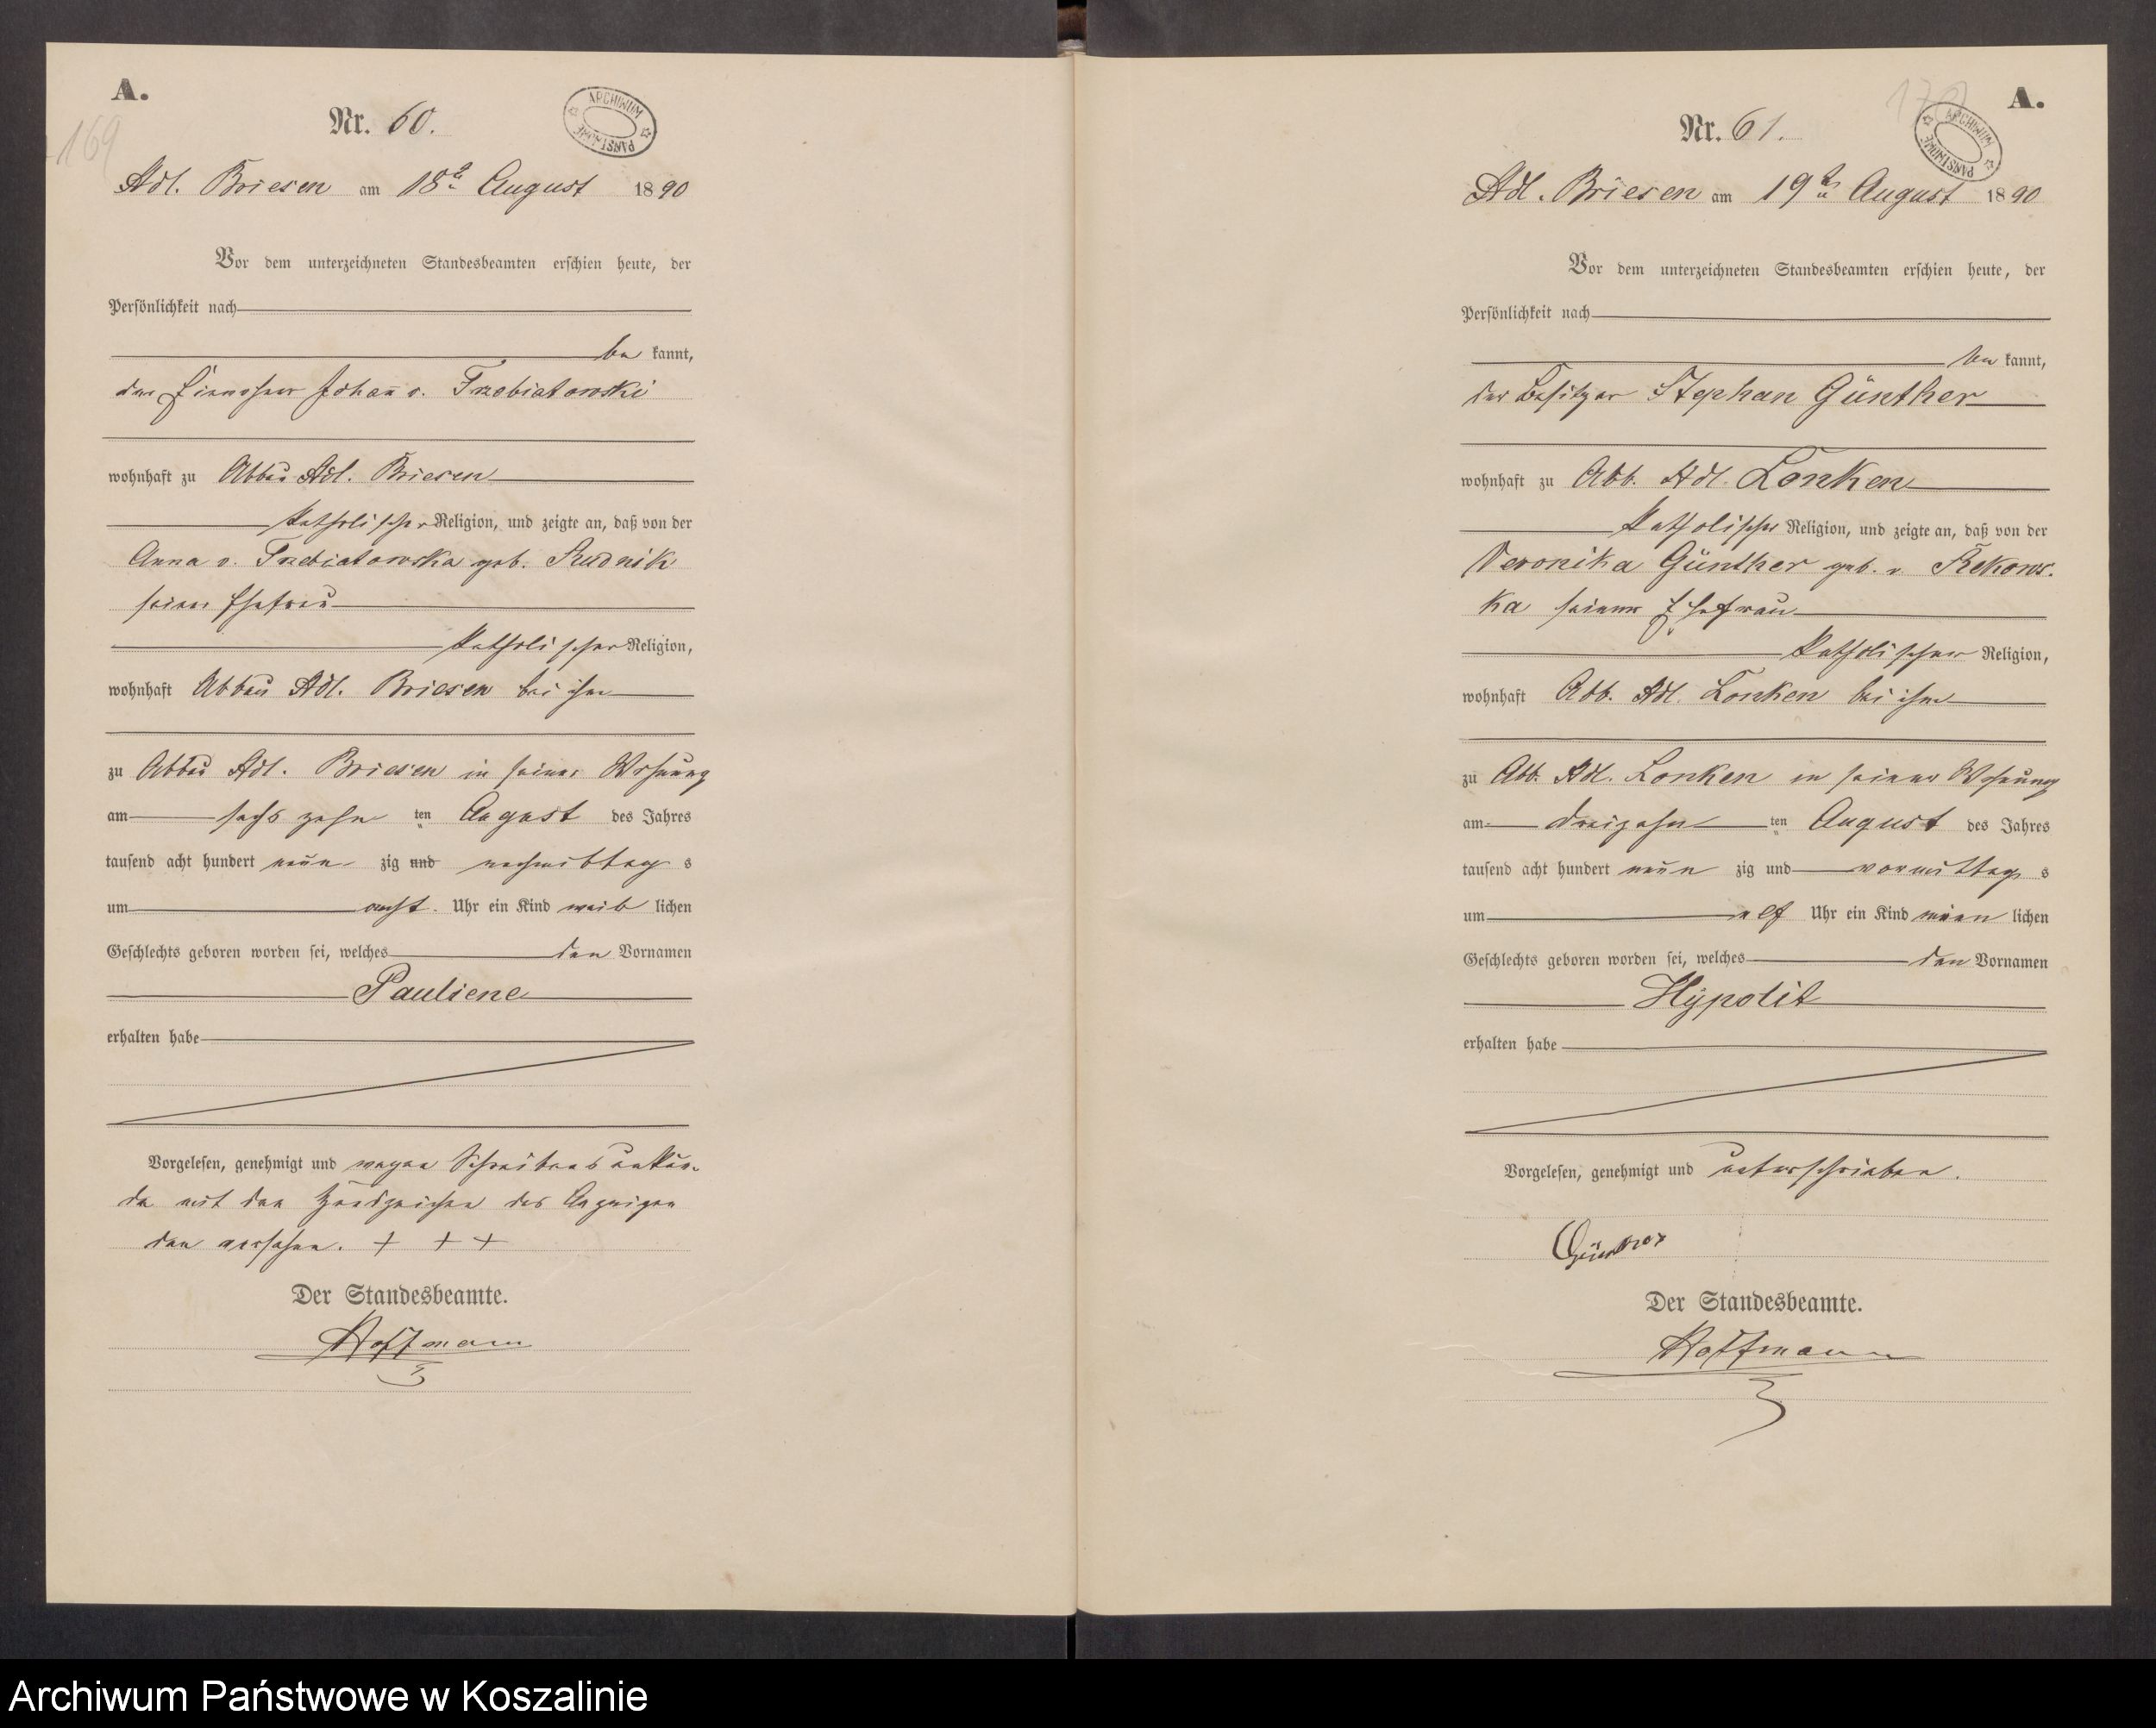 A.
169
Nr. 60.
ARCHIWUM PAŃSTWOWE
Adl. Briesen am 18ten August 1890
Vor dem unterzeichneten Standesbeamten erschien heute, der
Persönlichkeit nach
be kannt,
der Einwohner Johann v. Trzebiatowski
wohnhaft zu Abbau Adl. Briesen
katholischer Religion, und zeigte an, daß von der
Anna v. Trzebiatowska geb. Rudnik
seiner Ehefrau
katholischer Religion,
wohnhaft Abbau Adl. Briesen bei ihm
zu Abbau Adl. Briesen in seiner Wohnung
am sechszehn ten August des Jahres
tausend acht hundert neun zig und nachmittag s
um acht Uhr ein Kind weib lichen
Geschlechts geboren worden sei, welches den Vornamen
Pauliene
erhalten habe
Vorgelesen, genehmigt und wegen Schreibensunkun-
de mit den Handzeichen des Anzeigen
den versehen. + + +
Der Standesbeamte.
Hoffmann
A.
170
Nr. 61.
ARCHIWUM PAŃSTWOWE
Adl. Briesen am 19ten August 1890
Vor dem unterzeichneten Standesbeamten erschien heute, der
Persönlichkeit nach
be kannt,
der Besitzer Stephan Günther
wohnhaft zu Abb. Adl. Lonken
katholischer Religion, und zeigte an, daß von der
Veronika Günther geb. v Rekows-
ka seiner Ehefrau
katholischer Religion,
wohnhaft Abb. Adl. Lonken bei ihm
zu Abb. Adl. Lonken in seiner Wohnung
am dreizehn ten August des Jahres
tausend acht hundert neun zig und vormittag s
um elf Uhr ein Kind männ lichen
Geschlechts geboren worden sei, welches den Vornamen
Hÿpolit
erhalten habe
Vorgelesen, genehmigt und unterschrieben.
Günther
Der Standesbeamte.
Hoffmann
Archiwum Państwowe w Koszalinie